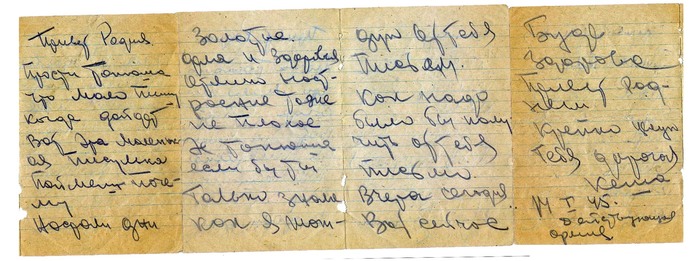 Привет Родная
Прости Тонюша
что мало пишу
когда дойдет
вот эта маленьк
ая письмишка
поймешь поче
му
Настали дни
Золотце
дома и здоровья
время наст
роение тоже
не плохое
Эх Тонюша
если бы ты
только знала
как я жом-
дую от тебя
писем.
как надо
было бы полу
чить от тебя
письмо
Вчера сегодня
Вот сейчас
Будь
здорова
Привет род-
ным
крепко целую
тебя дорогая
Кеша
14 I 45.
действующая
армия